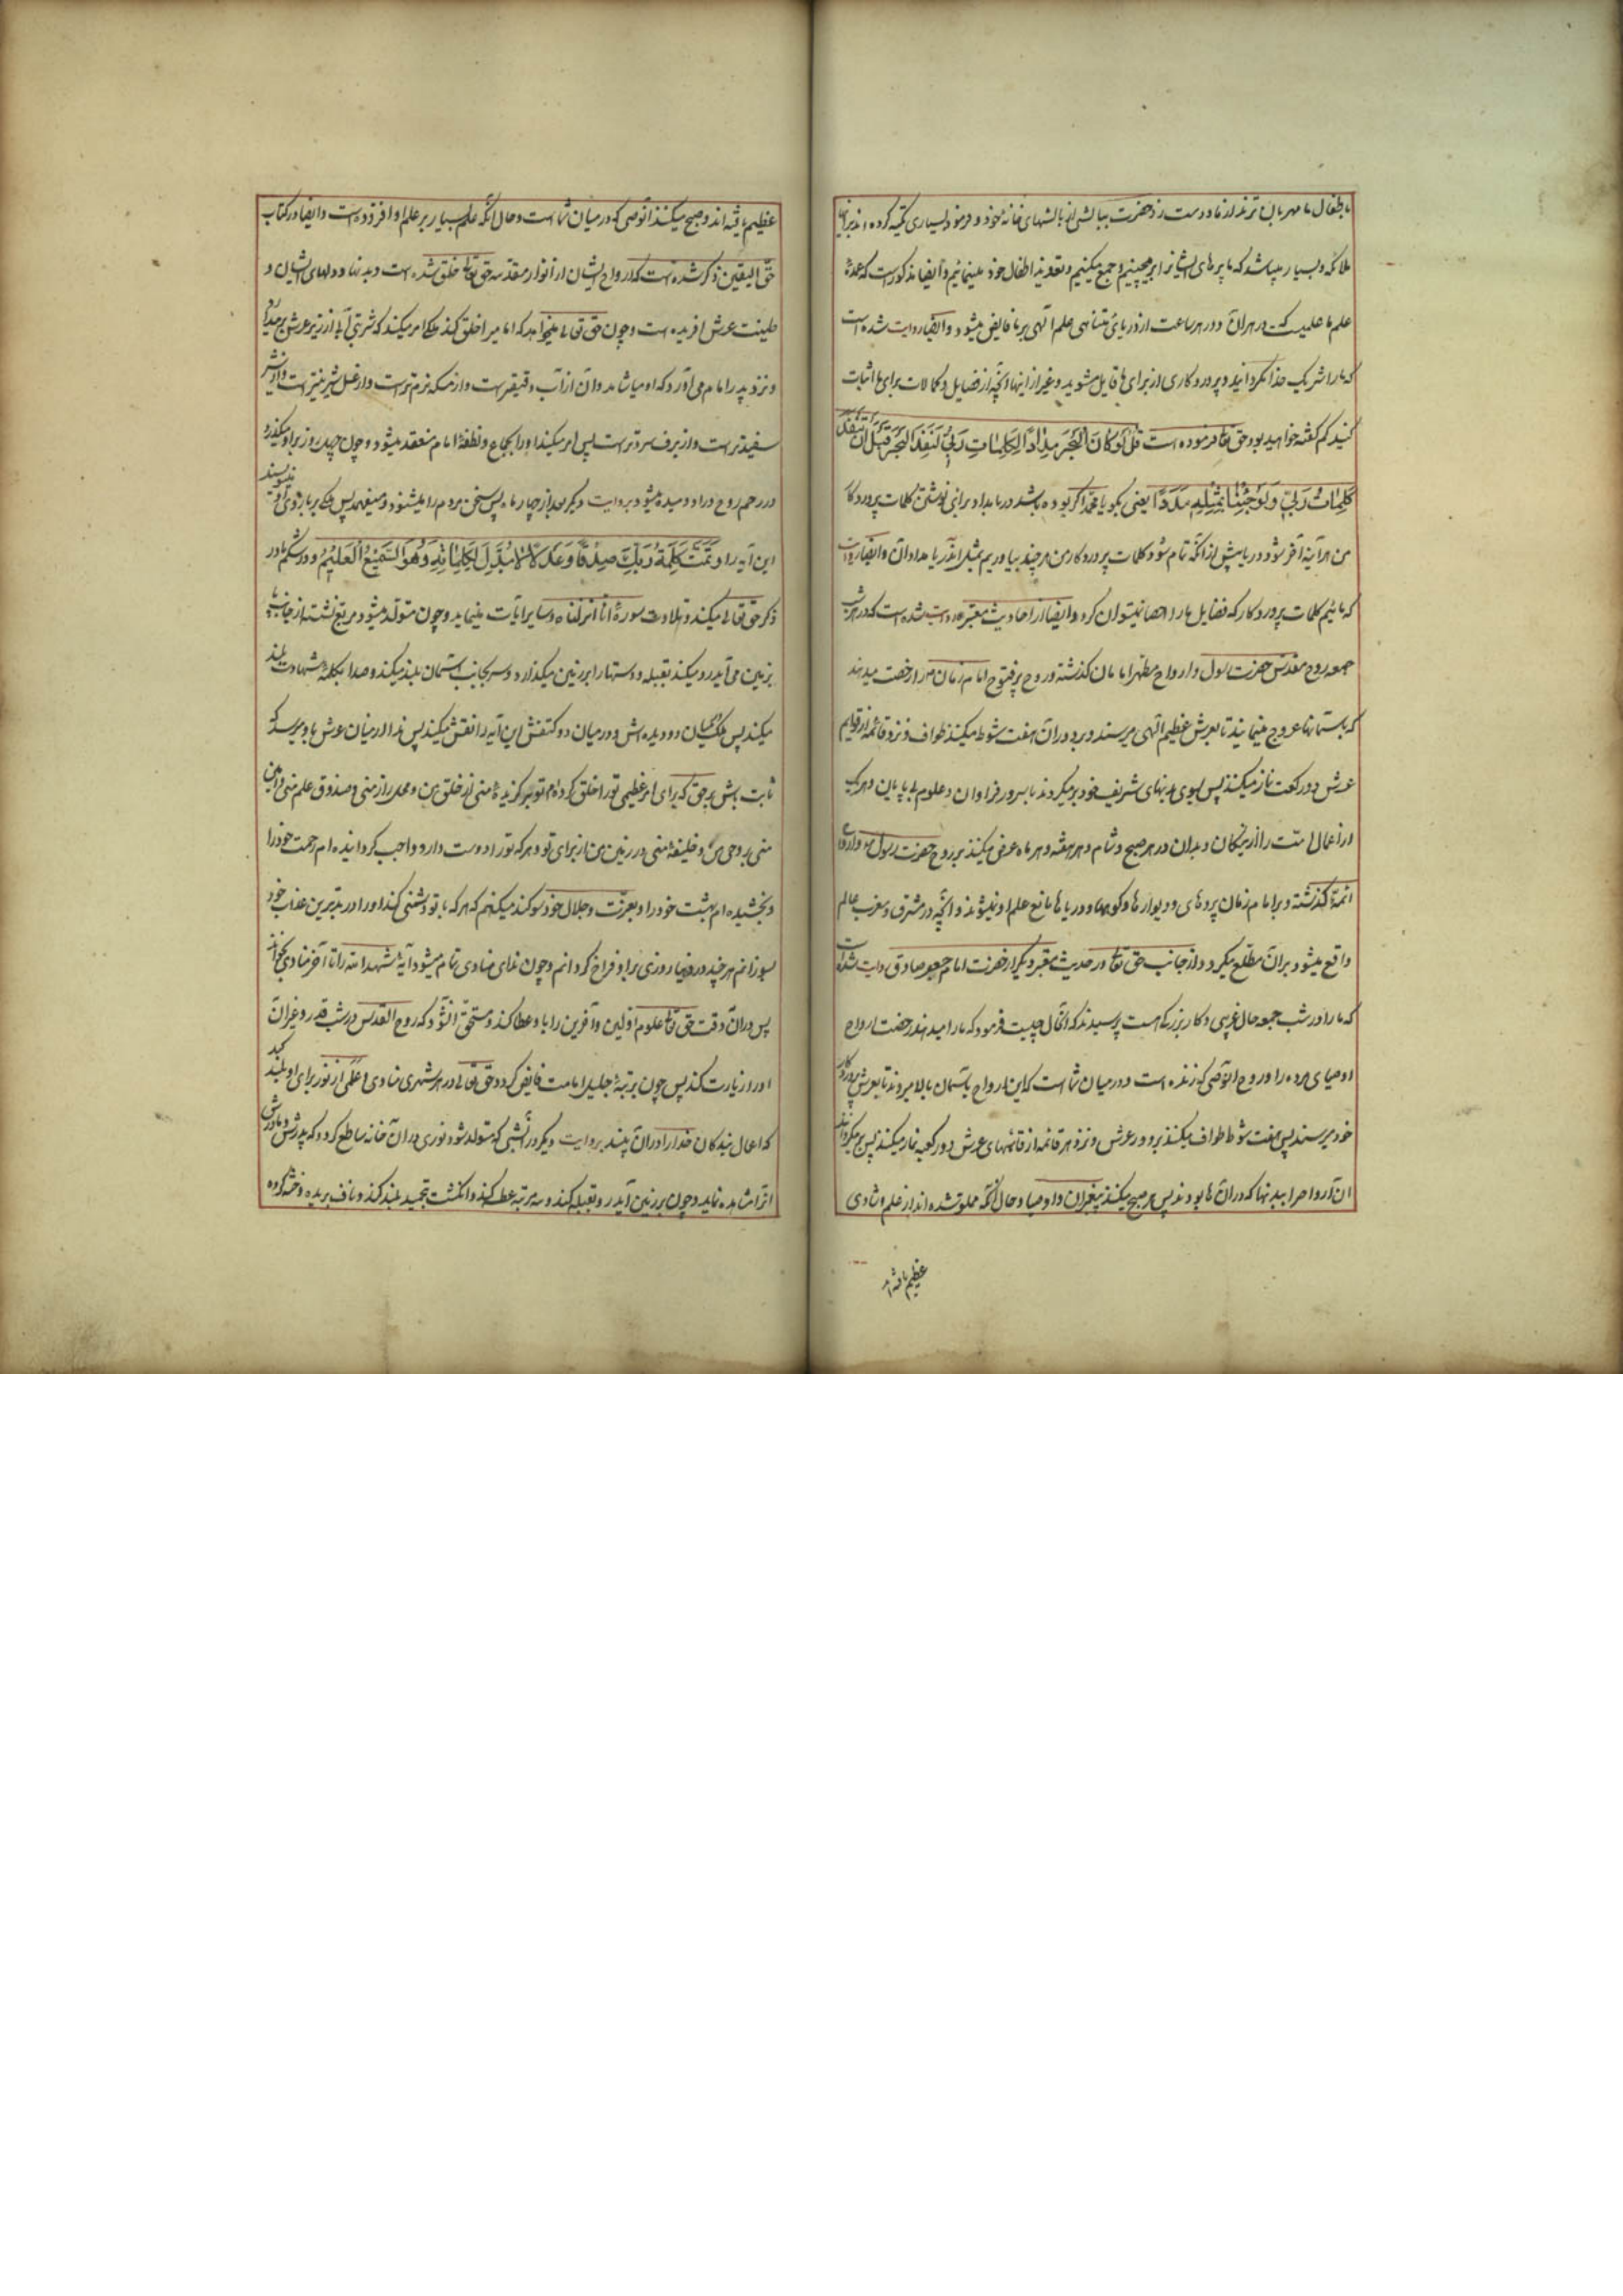 باطفال ما مهربان ترند از ما و دست زد حضرت ببالشی از بالشهای خانهٔ خود و فرمود بسیاری تکیه کرده اند براینها
ملائکه و بسیار میباشد که ما پرهای ایشانرا برمیچینیم و جمع میکنیم و تعویذ اطفال خود مینمائیم و ایضا مذکور است که عمدهٔ
علم ما علمیست که در هر آن و در هر ساعت از دریای نامتناهی علم الهی بر ما فایض میشود و ایضا روایت شده است
که ما را شریک خدا نگردانید و پروردگاری از برای ما قایل مشوید و غیر از اینها آنچه از فضایل و کمالات برای ما اثبات
کنید کم گفته خواهید بود حق تعا فرموده است قُلْ لَوْ كَانَ الْبَحْرُ مِدَادًا لِكَلِمَاتِ رَبِّي لَنَفِدَ الْبَحْرُ قَبْلَ أَنْ تَنْفَدَ
كَلِمَاتُ رَبِّي وَلَوْ جِئْنَا بِمِثْلِهِ مَدَدًا یعنی بگو یا محمد اگر بوده باشد دریا مداد برای نوشتن کلمات پروردگار
من هر آینه آخر شود دریا پیش از آنکه تمام شود کلمات پروردگار من هر چند بیاوریم مثل آن دریا مداد آن و ایضا روایت
که مائیم کلمات پروردگار که فضایل ما را احصا نمیتوان کرد و ایضا در احادیث معتبره روایت شده است که در هر شب
جمعه روح مقدس حضرت رسول و ارواح مطهر امامان گذشته و روح پرفتوح امام زمان را رخصت میدهند
که بآسمانها عروج مینمایند تا بعرش عظیم الهی میرسند و بر دور آن هفت شوط میکنند طواف و نزد قائمهٔ از قوایم
عرش دو رکعت نماز میکنند پس بسوی بدنهای شریف خود برمیگردند با سرور فراوان و علوم بی پایان و هر یک
از اعمال امت را از نیکان و بدان در هر صبح و شام و هر هفته و هر ماه عرض میکنند بر روح حضرت رسول و ارواح
ائمهٔ گذشته و بر امام زمان پردهای و دیوارها و کوهها و دریاها مانع علم او نمیشوند و آنچه در مشرق و مغرب عالم
واقع میشود بر آن مطلع میگردد از جانب حق تعا و در حدیث معتبر دیگر از حضرت امام جعفر صادق روایت شده است
که ما را در شب جمعه حال غریبی و کار بزرگی است پرسیدند که آنحال چیست فرمود که ما را میدهند رخصت ارواح
اوصیای مرده را و روح آنوصی که زنده است و در میان شما است که این ارواح بآسمان بالا میروند تا بعرش پروردگار
خود میرسند پس هفت شوط طواف میکنند بر دور عرش و نزد هر قائمه از قائمهای عرش دو رکعت نماز میکنند پس برمیگردانند
آن ارواح را ببدنها که در آن ها بودند پس صبح میکنند پیغمبران و اوصیا و حال آنکه مملو شده اند از علم و شادی
عظیم یافته اند
عظیم یافته اند و صبح میکند آنوصی که در میان شما است و حال آنکه علم بسیار بر علم او افزوده است و ایضا در کتاب
حق الیقین ذکر شده است که ارواح ایشان از انوار مقدسه حق تعا خلق شده است و بدنها و دلهای ایشان از
طینت عرش آفریده است و چون حق تعالی میخواهد که امامیرا خلق کند ملکی را امر میکند که شربتی آب از زیر عرش برمیدارد
و نزد پدر امام می آورد که او میاشامد و آن از آب رقیقتر است و از مسکه نرم تر است و از عسل شیرینتر است و از شیر
سفیدتر است و از برف سردتر است پس امر میکند او را بجماع و نطفهٔ امام منعقد میشود و چون چهل روز بر او میگذرد
در رحم روح در او دمیده میشود و بروایت دیگر بعد از چهار ماه پس سخن مردم را میشنود و میفهمد پس ملک بر بازوی او مینویسند
این آیه را وَتَمَّتْ كَلِمَةُ رَبِّكَ صِدْقًا وَعَدْلًا لَا مُبَدِّلَ لِكَلِمَاتِهِ وَهُوَ السَّمِيعُ الْعَلِيمُ و در شکم مادر
ذکر حق تعالی میکند و تلاوت سورهٔ انا انزلناه و سایر آیات مینماید و چون متولد میشود مربع نشسته از جانب پا
بزمین می آید رو میکند بقبله و دستها را بر زمین میگذارد و سر بجانب آسمان بلند میکند و صدا بکلمهٔ شهادت بلند
میکند پس ملک میان دو دیده اش و در میان دو کتفش این آیه را نقش میکند پس ندا از میان عرش باو میرسد که
ثابت باش بر حق که برای امر عظیمی تو را خلق کرده ام تو برگزیدهٔ منی از خلق من و محل راز منی و صندوق علم منی و امین
منی بر وحی من و خلیفهٔ منی در زمین من از برای تو و هر که تو را دوست دارد واجب گردانیده ام رحمت خود را
و بخشیده ام بهشت خود را و بعزت و جلال خود سوگند میکنم که هر که با تو دشمنی کند او را در بدترین عذاب خود
بسوزانم هر چند در دنیا روزی بر او فراخ گردانم و چون ندای منادی تمام میشود آیهٔ شهد الله را تا آخر منادی بخواند
پس در آن وقت حق تعا علوم اولین و آخرین را باو عطا کند و مستحق آن شود که روح القدس در شب قدر و غیر آن
او را زیارت کند پس چون بمرتبهٔ جلیل امامت فایض گردد حق تعالی در هر شهری منادی و علمی از نور برای او بلند کند
که اعمال بندگان خدا را در آن بیند بروایت دیگر در آنشبی که متولد شود نوری در آن خانه ساطع گردد که پدرش و مادرش
آنرا مشاهده نماید و چون بر زمین آید رو بقبله کند و سه مرتبه عطسه کند و انگشت بتحمید بلند کند و ناف بریده و ختنه کرده